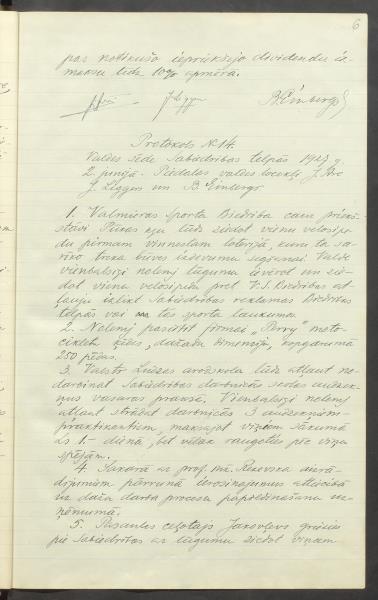 6
pas notikušo iepriekšējo dividendu iz-
maksu līdz 10% apmēra.
B. Einbergs
Protokols N 14.
Valdes sēde Sabiedrības telpās 1927 g.
2. jūnijā. Piedalās valdes locekļi J.
J. Liggers un B. Einbergs
1. Valmieras Sporta Biedrība caur priekš-
stāvi lūdz ziedot vienu velosipē-
du pirmam vinnestam loterijā, kuru ta sa-
rīko treka būves izdevumu segšanai. Valde
vienbalsīgi nolemj lūgumu ievērot un zie-
dot vienu velosipēdu pret V.S. Biedrības at-
ļauju izlikt Sabiedrības reklamas Biedrības
telpās vai uz tās sporta laukuma.
2. Nolemj pasūtīt firmai "Perry" moto-
cikletu ķēdes, dažādu dimensiju, kopsummā
250 pēdas.
3. Valsts arodskola lūdz atļaut no-
darbināt Sabiedrības darbnīcās skolas audzēk-
ņus vasaras praksē. Vienbalsīgi nolemj
atļaut strādāt darbnīcās 3 audzēkņiem-
praktikantiem, maksājot viņiem sākumā
Ls 1.- dienā, bet vēlāk raugoties pēc viņu
spējām.
4. Sakarā ar prof. aizrā-
dījumiem pārrunā ierosinājumus attiecībā
uz daža darba procesu papildināšanu uz-
ņēmumā.
5. Pasaules ceļotājs Jakovļevs griežas
pie Sabiedrības ar lūgumu ziedot viņam